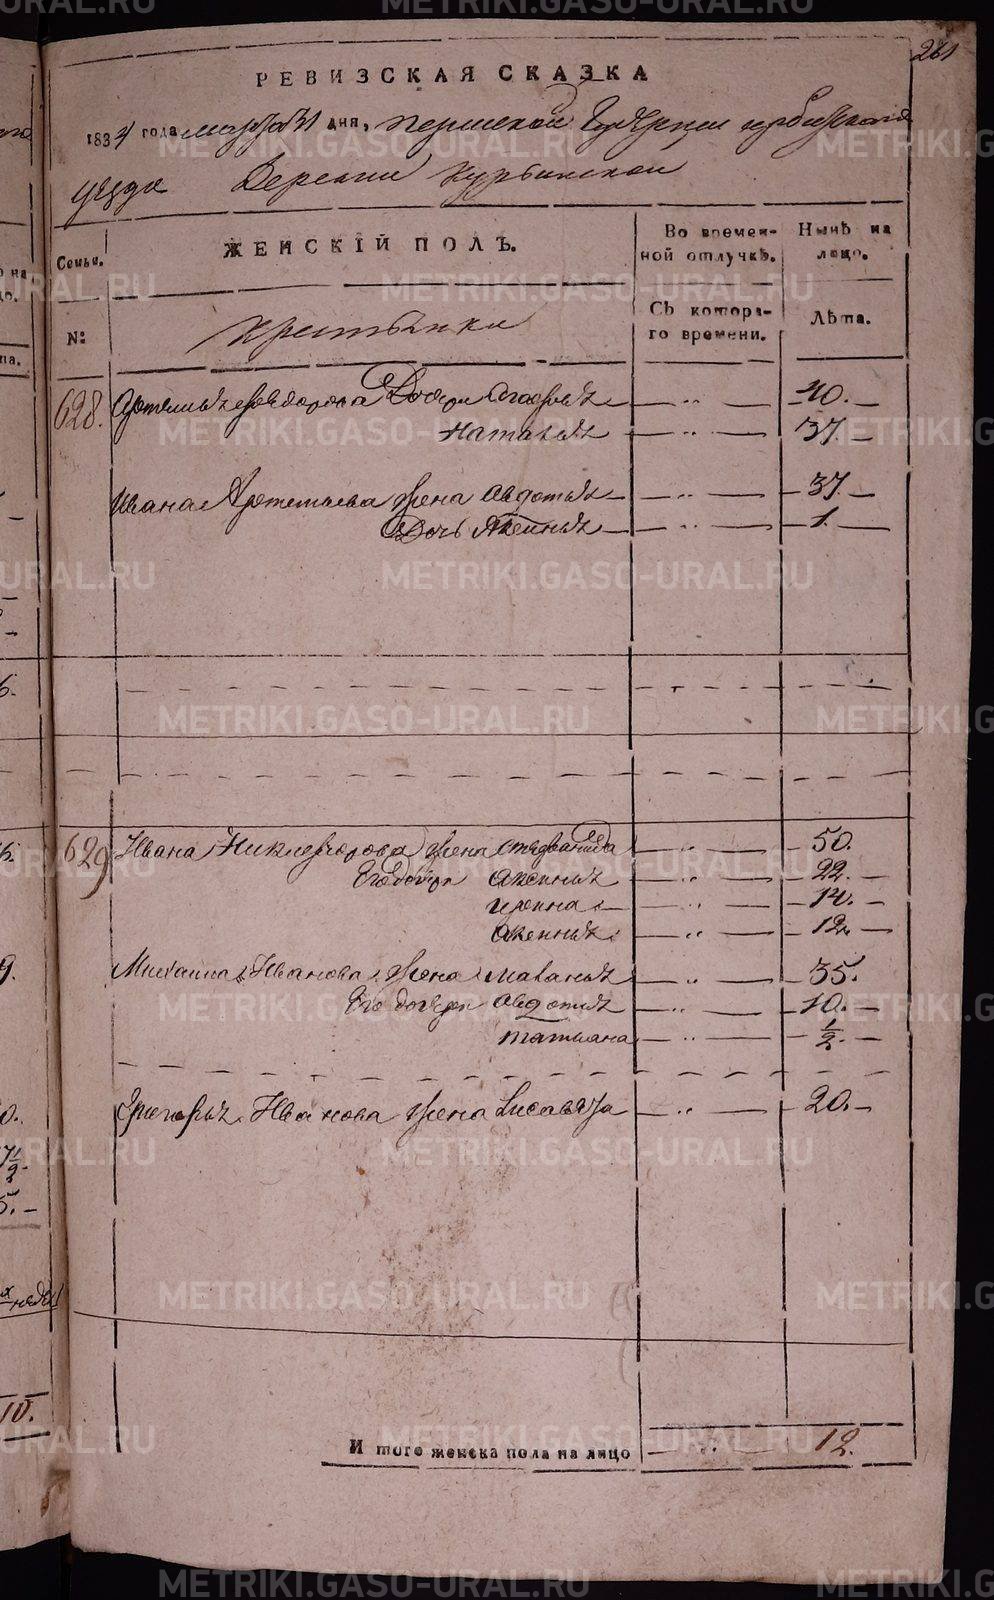 261
РЕВИЗСКАЯ СКАЗКА
1834 года марта 31 дня, Пермской Губернии Ирбитскаго
уезда Деревни Курьинской
Семьи.
ЖЕНСКІЙ ПОЛЪ.
Во времен-
ной отлучкѣ.
Нынѣ на
лицо.
№:
Крестьянки
Съ которa-
го времени.
Лѣта.
628. Артемья Дочери 40.
Наталья 37
Ивана Артемьева жена Авдотья 37
Дочь Аксинья 1.
629 Ивана Никифорова жена Степанида 50.
Его дочери Аксинья 22.
Ирина 14.
Аксинья 12
Михаила Иванова жена Маланья 35.
Его дочери Авдотья 10.
Татьяна 1/2.
Григорья Иванова жена Лисавета 20.
Итого женска пола на лицо 12.
METRIKI.GASO-URAL.RU